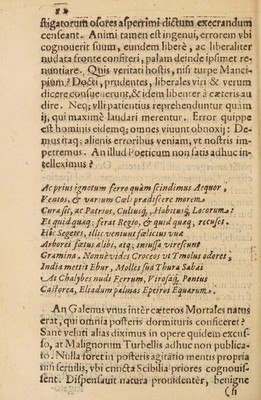 82
stigatorum osores asperrimi dictum execrandum
censeant. Animi tamen est ingenui, errorem vbi
cognouerit suum, eundem liberè, ac liberaliter
nudata fronte confiteri, palam deinde ipsimet re-
nuntiare. Quis veritati hostis, nisi turpe Manci-
pium? Docti, prudentes, liberales viri & verum
dicere consueuerunt, & idem libenter à cæteris au-
dire. Neq; vlli patientius reprehenduntur quàm
ij, qui maximè laudari merentur. Error quippe
est hominis eidemq; omnes viuunt obnoxij: De-
mus itaq; alienis erroribus veniam, vt nostris im-
petremus. An illud Poeticum non satis adhuc in-
telleximus?
Ac prius ignotum ferro quàm scindimus Æquor,
Ventos, & varium Cæli prædiscere morem
Cura sit, ac Patrios, Cultusq́, Habitusq́, Locorum:
Et quid quæq; ferat Regio, & quid quæq, recuset.
Hic Segetes, illic veniunt fœlicius vuæ
Arborei fœtus alibi, atq; iniussa virescunt
Gramina. Nonne vides Croceos vt Tmolus odores,
India mittit Ebur, Molles sua Thura Sabæi
At Chalybes nudi Ferrum, Virosaq́; Pontus
Castorea, Eliadum palmas Epeiros Equarum.
An Galenus vnus inter cæteros Mortales natus
erat, qui omnia posteris dormituris conficeret?
Sane veluti alias diximus in opere quidem excus-
so, at Malignorum Turbellis adhuc non publica-
to. Nulla foret in posteris agitatio mentis propria
nisi seruilis, vbi cuncta Scibilia priores cognouis-
sent. Dispensauit natura prosidenter, benigne